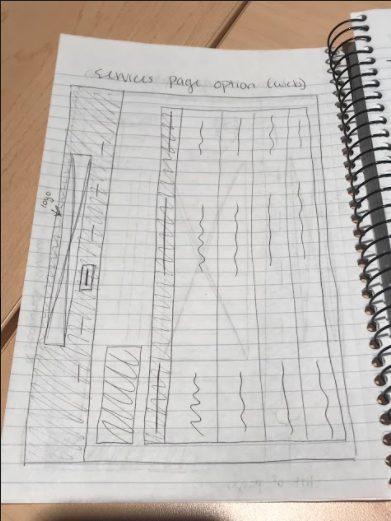 Services page option (web)
logo